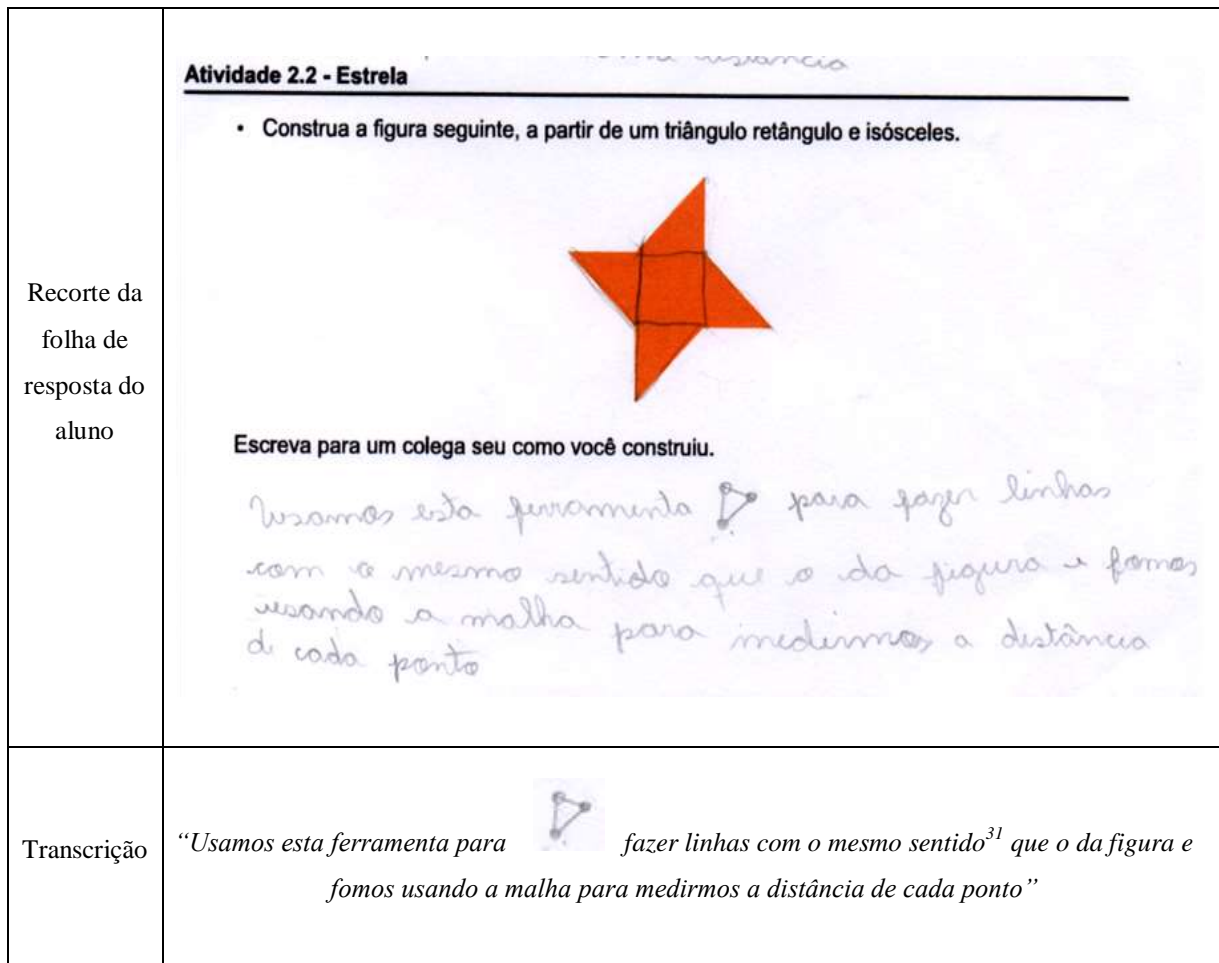 distância
Atividade 2.2 - Estrela
• Construa a figura seguinte, a partir de um triângulo retângulo e isósceles.
Recorte da
folha de
resposta do
aluno
Escreva para um colega seu como você construiu.
Usamos esta ferramenta para fazer linhas
com o mesmo sentido que o da figura e fomos
usando a malha para medirmos a distância
de cada ponto
Transcrição
“Usamos esta ferramenta para fazer linhas com o mesmo sentido31 que o da figura e
fomos usando a malha para medirmos a distância de cada ponto”